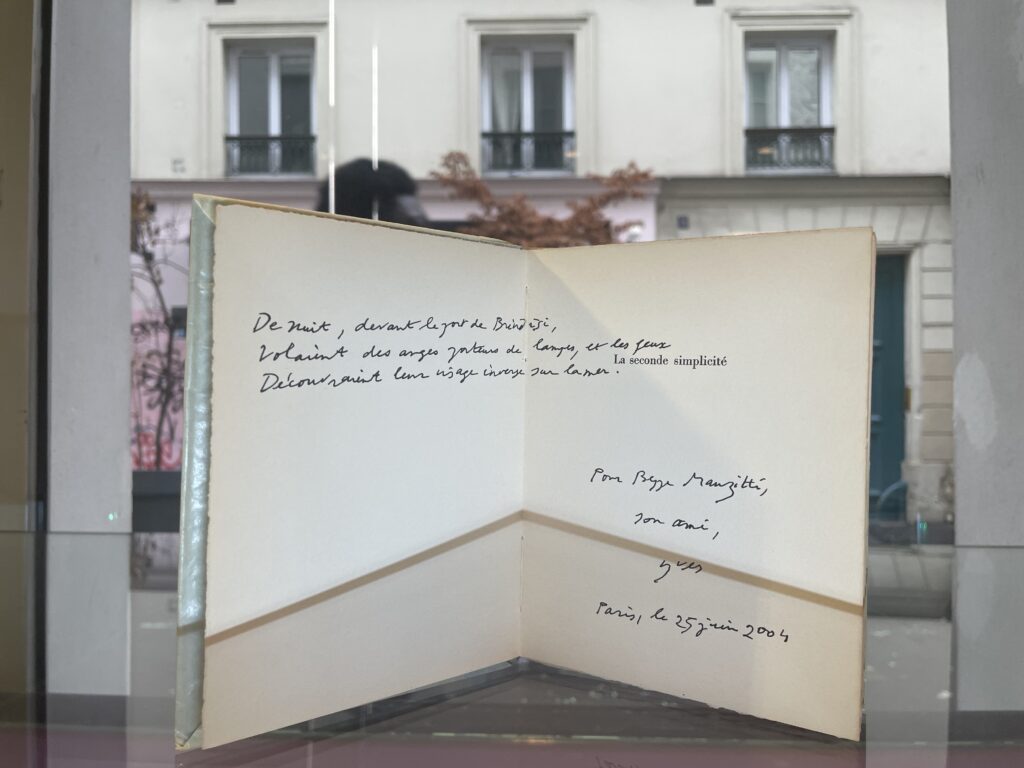 De nuit, devant le port de Brindisi,
Volaient des anges porteurs de lampes, et les feux
Découvraient leur visage inverse sur la mer.
La seconde simplicité
Pour Beppe Manzitti,
son ami,
Yves
Paris, le 25 juin 2004